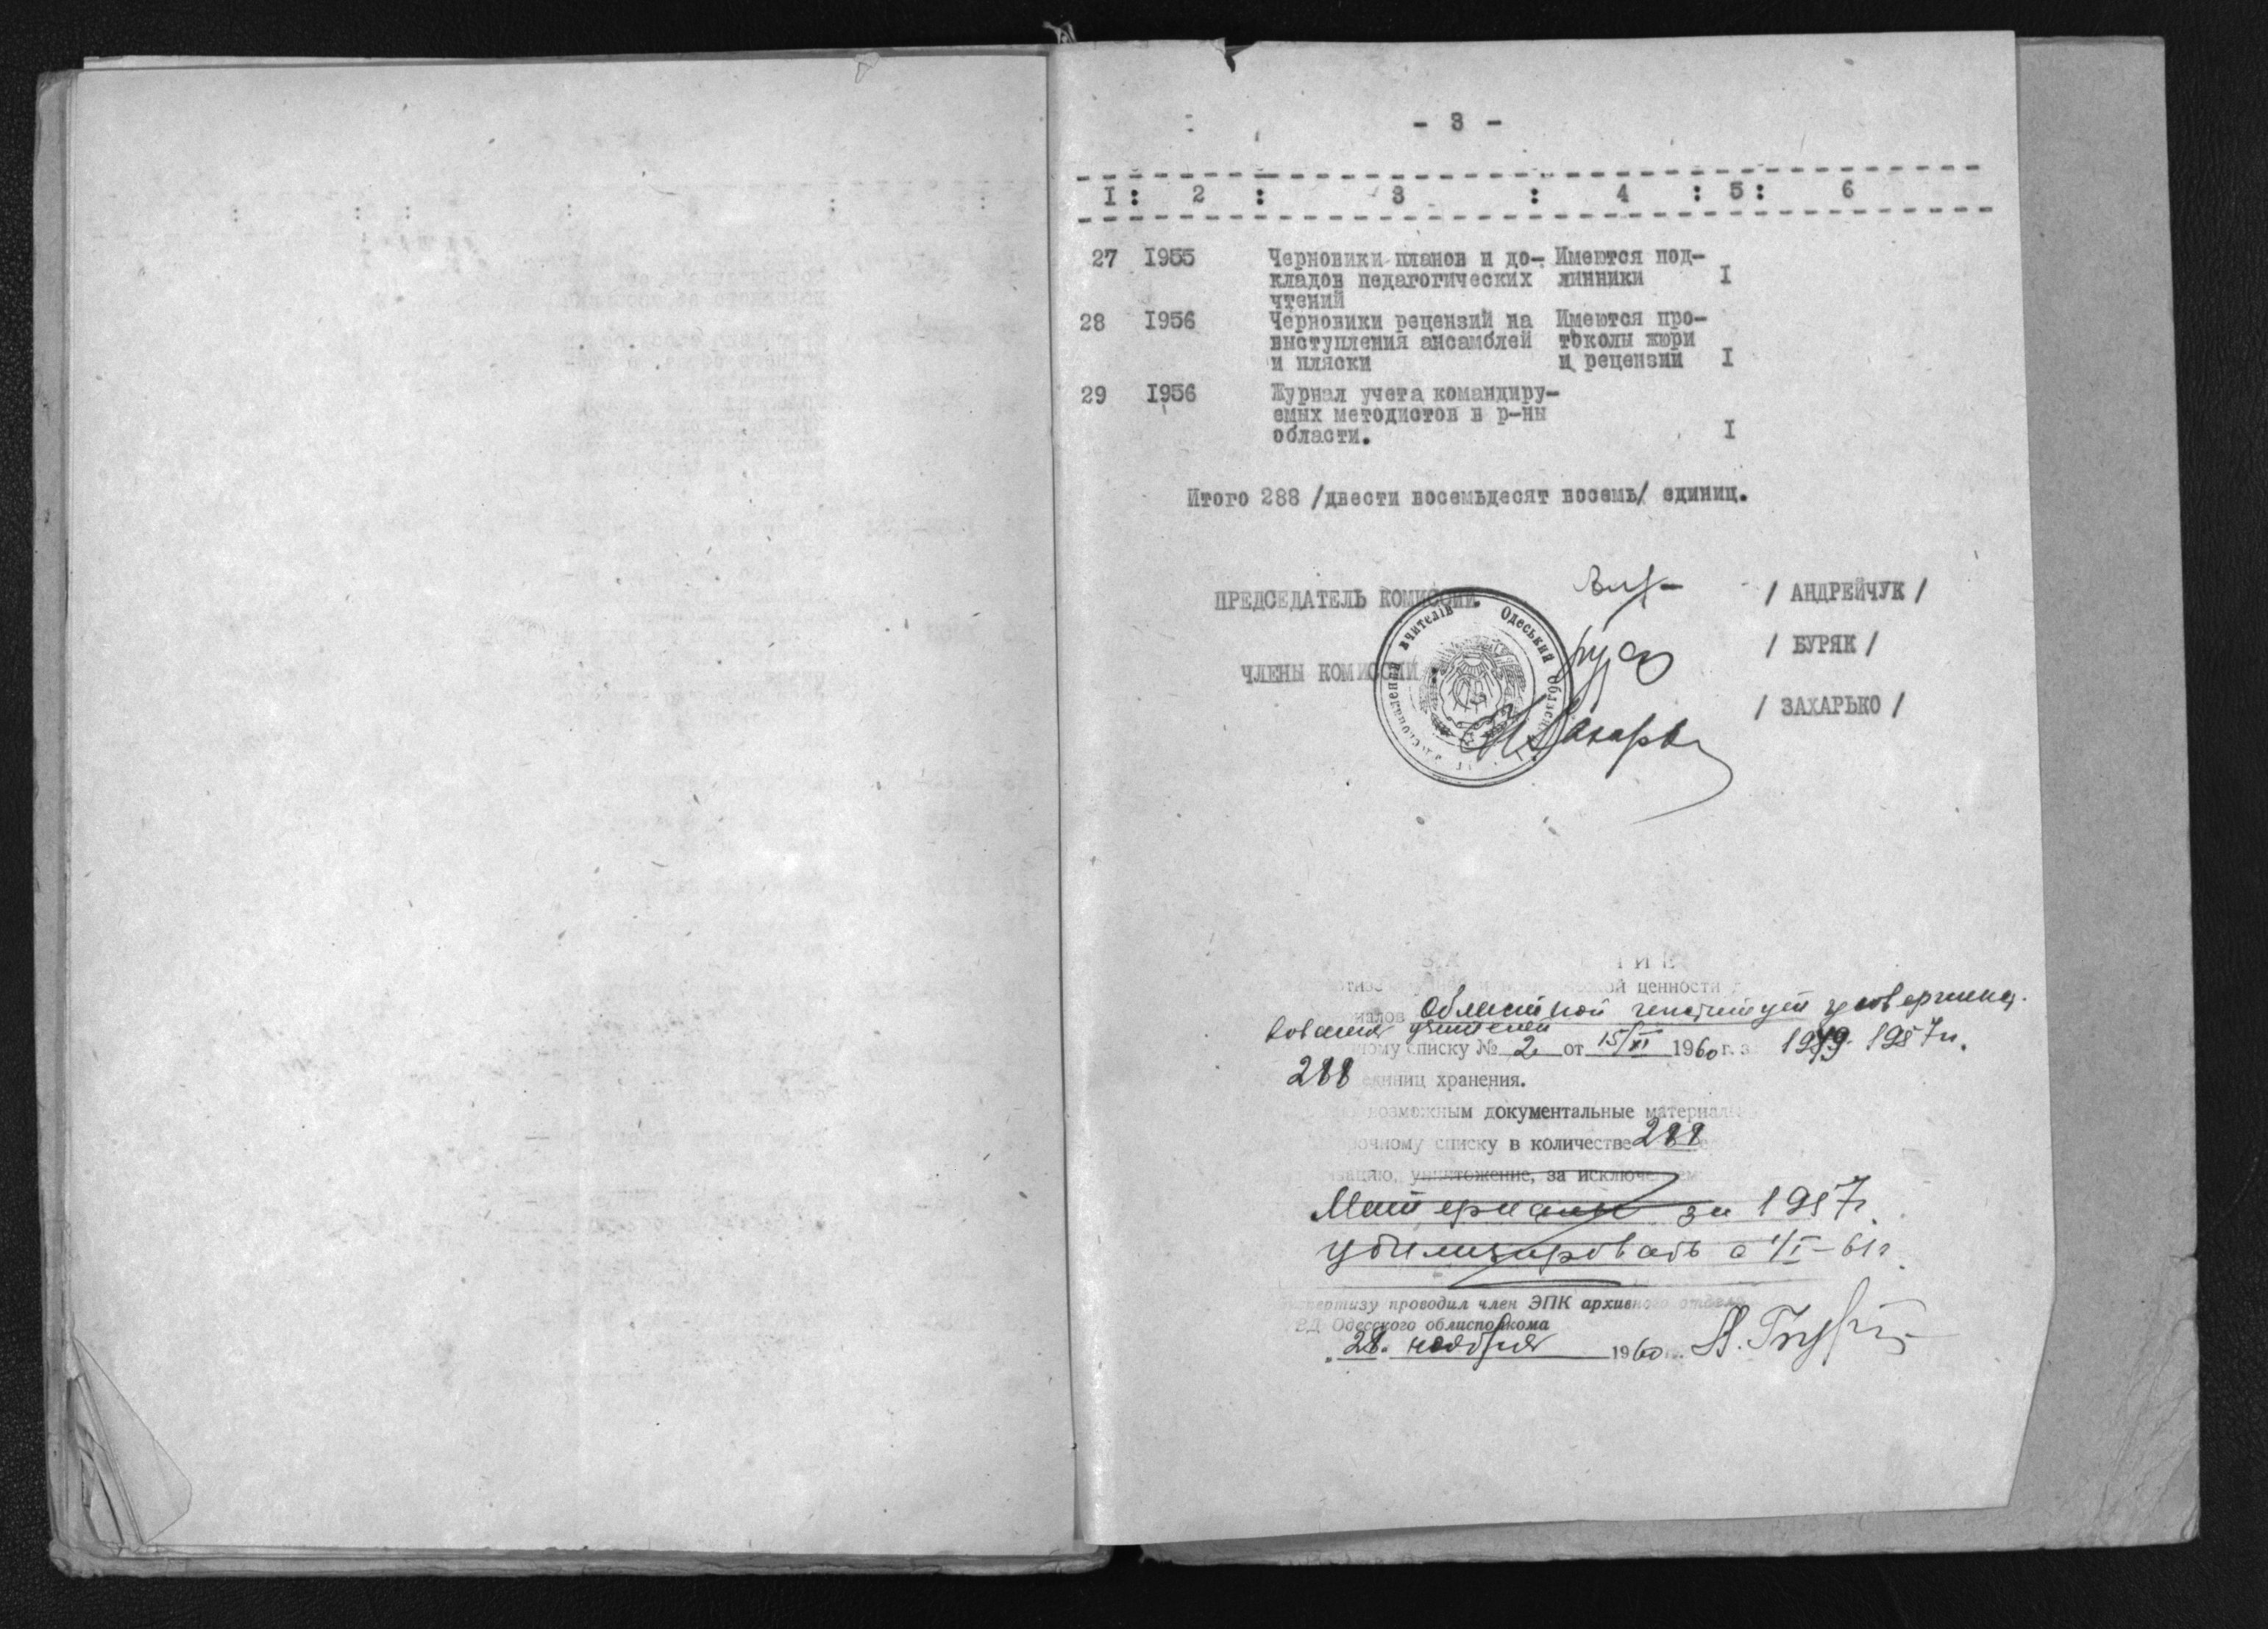 - 3 -
I : 2 : 3 : 4 : 5 : 6
27 I955 Черновики планов и до- Имеются под-
кладов педагогических линники I
чтений
28 I956 Черновики рецензий на Имеются про-
выступления ансамблей токолы жюри
и пляски и рецензии I
29 I956 Журнал учета командиру-
емых методистов в р-ны
области. I
Итого 288 /двести восемьдесят восемь/ единиц.
ПРЕДСЕДАТЕЛЬ КОМИССИИ / АНДРЕЙЧУК /
/ БУРЯК /
ЧЛЕНЫ КОМИССИИ :
/ ЗАХАРЬКО /
Одеський вчителів
ценности
Областной институт усовершенст-
вования учителей
списку № 2 от 15/XI 1960 г. 1949-1957гг.
288 единиц хранения.
возможным документальные материал
списку в количестве 288
уничтожение, за исключе
Материалы за 1957г.
утилизировать с 1/I-61г.
проводил член ЭПК архивного отдела
Одесского облисполкома
"28" ноября 1960